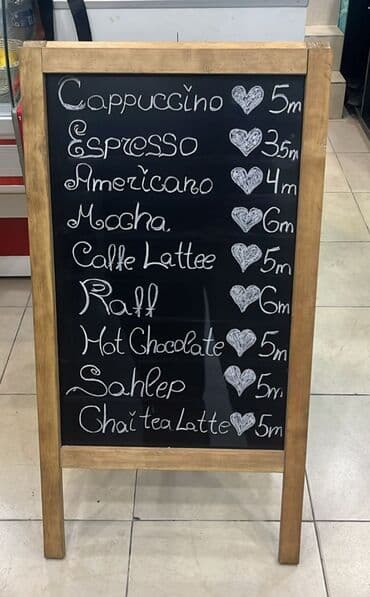 Cappuccino 5m
Espresso 3.5m
Americano 4m
Mocha. 6m
Caffe Lattee 5m
Raff 6m
Hot Chocolate 5m
Sahlep 5m
Chai tea Latte 5m